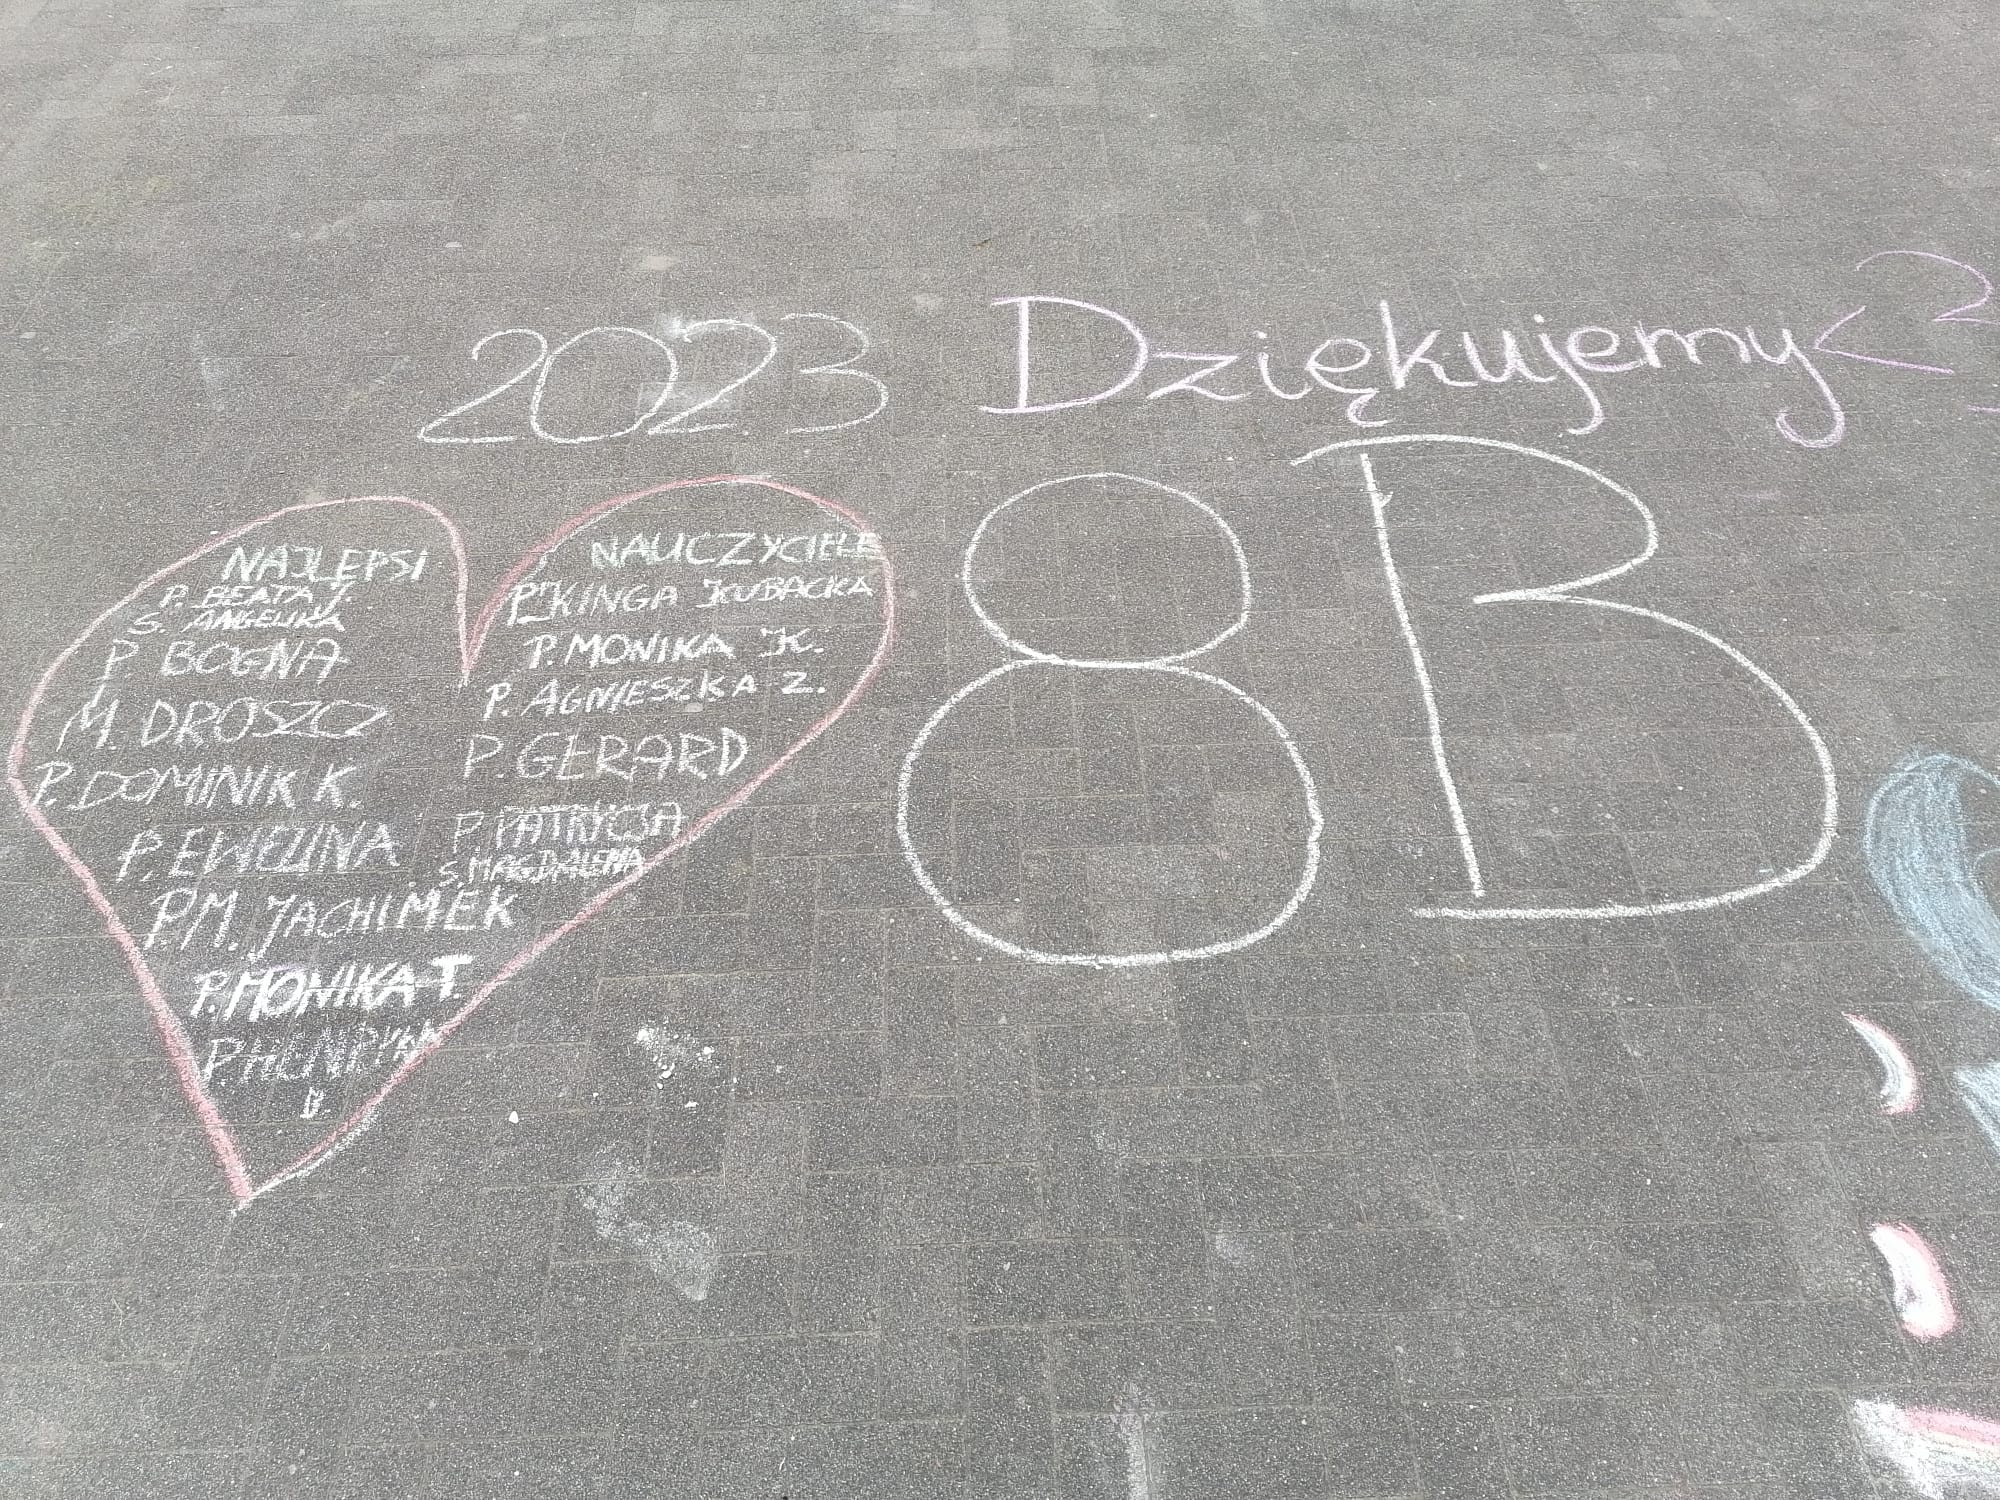 2023 Dziękujemy <3
8B
NAJLEPSI NAUCZYCIELE
P. BEATA J.
S. ANGELIKA
P. BOGNA
M. DROSZCZ
P. DOMINIK K.
P. EWELINA
P.M. JACHIMEK
P. MONIKA T.
P. HENRYKA
B.
P. KINGA KUBACKA
P. MONIKA K.
P. AGNIESZKA Z.
P. GERARD
P. PATRYCJA
S. MAGDALENA